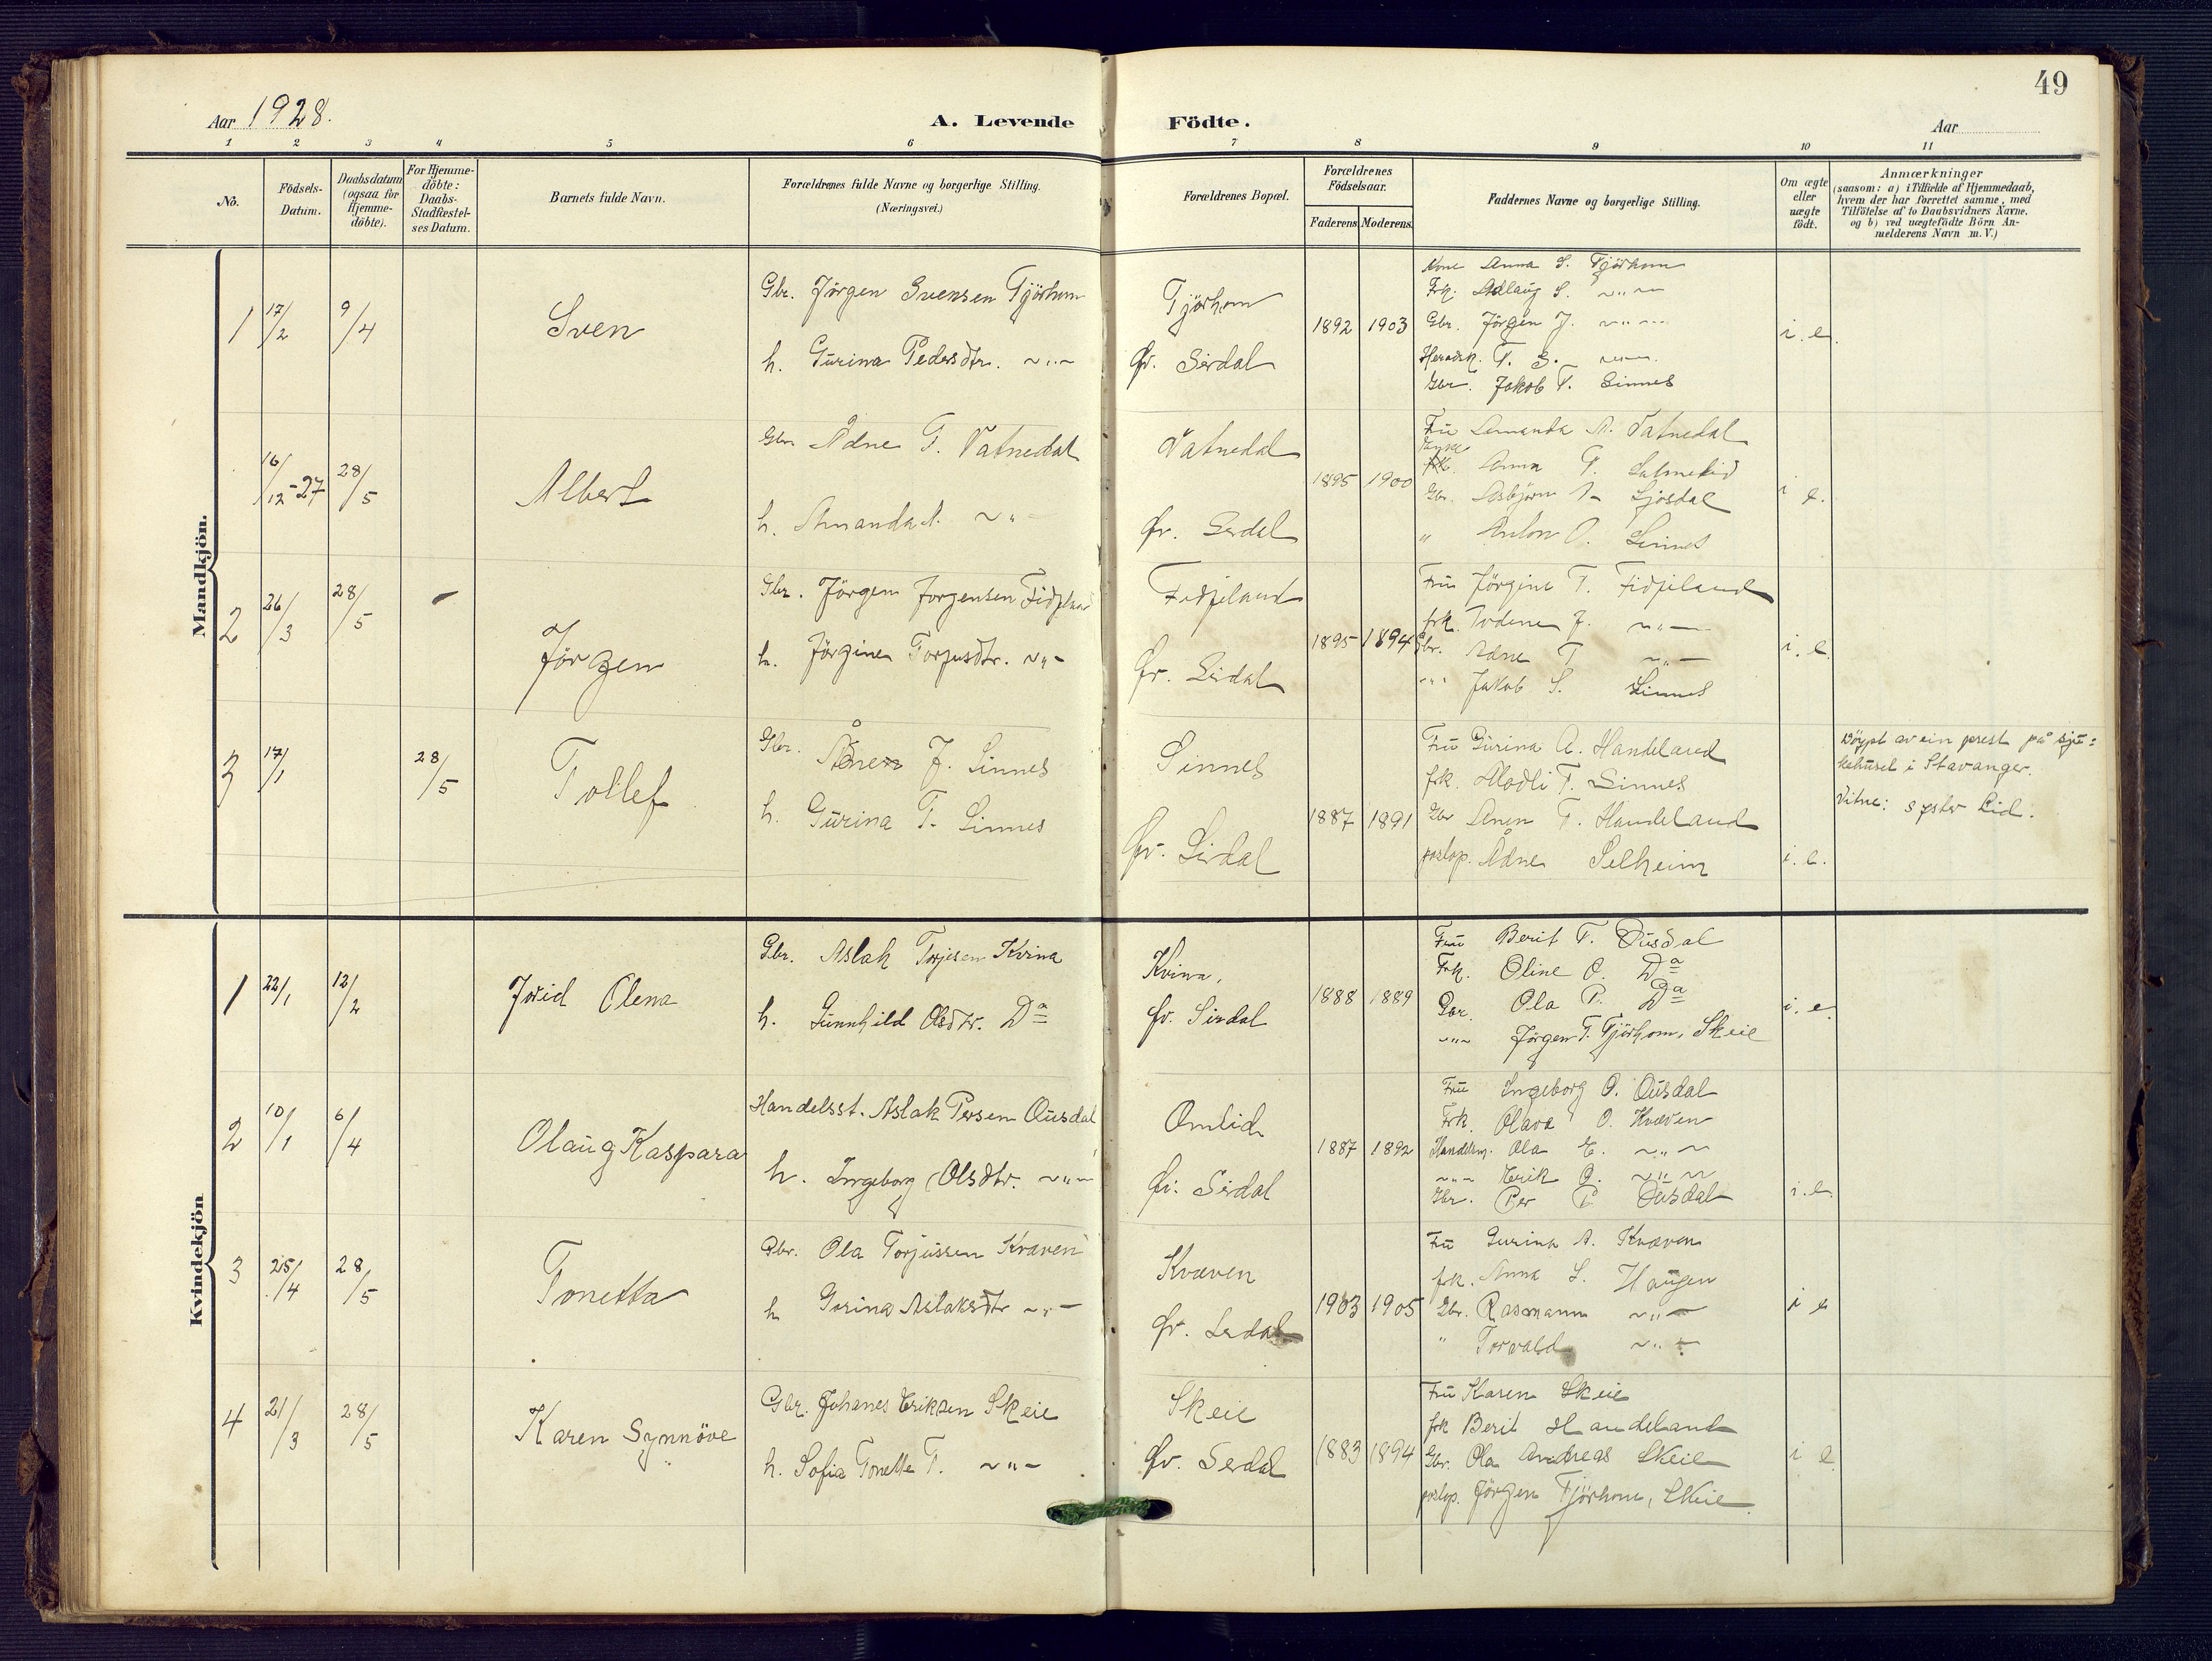 49
Aar 1928.
A. Levende Födte.
Aar
1 2 3 4 5 6 7 8 9 10 11
No.
Födsels-Datum.
Daabsdatum (ogsaa for Hjemme-döbte).
For Hjemme-döbte: Daabs-Stadfæstel-ses Datum.
Barnets fulde Navn.
Forældrenes fulde Navne og borgerlige Stilling.
(Næringsvei.)
Forældrenes Bopæl.
Forældrenes Födselsaar.
Faderens Moderens
Faddernes Navne og borgerlige Stilling.
Om ægte eller uægte födt.
Anmærkninger
(saasom: a) i Tilfælde af Hjemmedaab,
hvem der har forrettet samme, med
Tilföielse af to Daabsvidners Navne.
og b) ved uægtefödte Börn An-
melderens Navn m.V.)
Mandkjön.
1 17/2 9/4 Sven
Gbr. Jörgen Svensen Tjörhom
h. Gurina Pedersdtr. ~"~
Tjörhom
Øv. Sirdal
1892 1903
Kone Anna S. Tjörhom
Frk. Adlaug S. ~"~
Gbr. Jörgen J. ~"~
T. S. ~"~
Gbr. Jakob T. Sinnes
i. e.
16/12-27 28/5 Albert
Gbr. Ådne T. Vatnedal
h. Amanda A. ~"~
Vatnedal
Øv. Sirdal
1895 1900
Fru Amanda A. Vatnedal
Anna T.
Gbr. Asbjörn A. Ljosdal
" Anton O. Sinnes
i e.
2 26/3 28/5 - Jörgen
Gbr. Jörgen Jorgensen Fidjeland
h. Jörgine Torjusdtr. ~"~
Fidjeland
Øv. Sirdal
1895 1894
Fru Jörgine T. Fidjeland
frk. Todene J. ~"~
Gbr. Ådne T ~"~
~"~ Jakob S. Sinnes
i. e.
3 17/1 28/5 Tollef
Gbr. Ånen J. Sinnes
h. Gurina T. Sinnes
Sinnes
Øv. Sirdal
1887 1891
Fru Gurina A. Handeland
frk. Madli T. Sinnes
Gbr Anen T. Handeland
postop. Ådne Selheim
i. e.
Döypt av ein prest på sju=
kehuset i Stavanger.
Vitne: syster Lid.
Kvindekjön
1 22/1 12/2 Jorid Olena
Gbr. Aslak Torjesen Kvina
h. Gunnhild Olsdtr. Da
Kvina,
Øv. Sirdal
1888 1889
Fru Berit T. Ousdal
Frk. Oline O. Da
Gbr. Ola P. Da
~"~ Jörgen T. Tjörhom, Skeie
i. e.
2 10/1 6/4 Olaug Kaspara
Handelsst. Aslak Persen Ousdal
h. Ingeborg Olsdtr. ~"~
Omlid
Øv. Sirdal
1887 1892
Fru Ingeborg O. Ousdal
Frk. Olava O. Kvæven
Handelsm. Ola E. ~"~
~"~ Erik O. ~"~
Gbr. Per P. Ousdal
i. e.
3 25/4 28/5 Tonetta
Gbr. Ola Torjussen Kvæven
h Gurina Aslaksdtr ~"~
Kvæven
Øv. Sirdal
1903 1905
Fru Gurina A. Kvæven
frk. Anna S. Haugen
Gbr. Rasmann ~"~
" Torvald ~"~
i e
4 21/3 28/5 Karen Synnöve
Gbr. Johanes Eriksen Skeie
h. Sofia Tonette T. ~"~
Skeie
Øv. Serdal
1883 1894
Fru Karen Skeie
frk Berit Handeland
Gbr. Ola Andreas Skeie
postop. Jörgen Tjörhom, Skeie
i e.